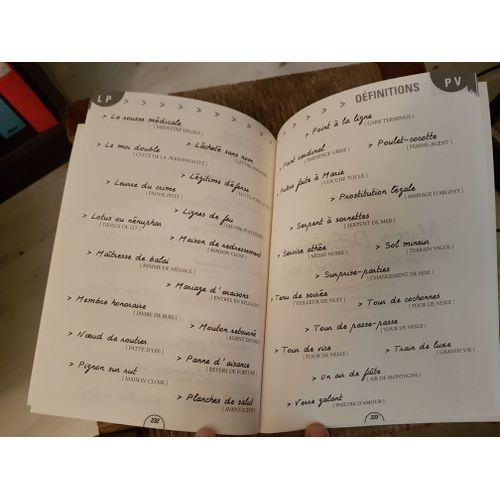 L P
> La rousse médicale
[ MÉDECINE LÉGALE ]
> Le moi double
[ CULTE DE LA PERSONNALITÉ ]
> Lâcheté sans nom
> Leurre du crime
[ FAUSSE PISTE ]
> Légitime défense
> Lotus ou nénuphar
[ DESSUS DE LIT ]
> Lignes de feu
> Maison de redressement
[ MAISON CLOSE ]
> Maîtresse de balai
[ FEMME DE MÉNAGE ]
> Mariage d'oraisons
[ ENTRÉE EN RELIGION ]
> Membre honoraire
[ JAMBE DE BOIS ]
> Mouton retourné
[ AGENT DOUBLE ]
> Nœud de routier
[ PATTE D'OIE ]
> Panne d'aisance
[ REVERS DE FORTUNE ]
> Pignon sur rut
[ MAISON CLOSE ]
> Planches de salut
[ AVANT-SCÈNE ]
232
DÉFINITIONS
P V
> Point à la ligne
[ GARE TERMINUS ]
> Point cardinal
[ ÉMINENCE GRISE ]
> Poulet-cocotte
[ FEMME-AGENT ]
> Prière faite à Marie
[ COUCHE TOI LÀ ]
> Prostitution légale
[ MARIAGE D'ARGENT ]
> Serpent à sornettes
[ SERPENT DE MER ]
> Service athée
[ MESSE NOIRE ]
> Sol mineur
[ TERRAIN VAGUE ]
> Surprise-parties
[ CHANGEMENT DE SEXE ]
> Tenu de soirée
[ VEILLEUR DE NUIT ]
> Tour de cochonnes
[ TOUR DE NESLE ]
> Tour de passe-passe
[ TOUR DE NESLE ]
> Tour de vice
[ TOUR DE NESLE ]
> Train de luxe
[ GRANDE VIE ]
> Un air de faîte
[ AIR DE MONTAGNE ]
> Verre galant
[ PHILTRE D'AMOUR ]
233